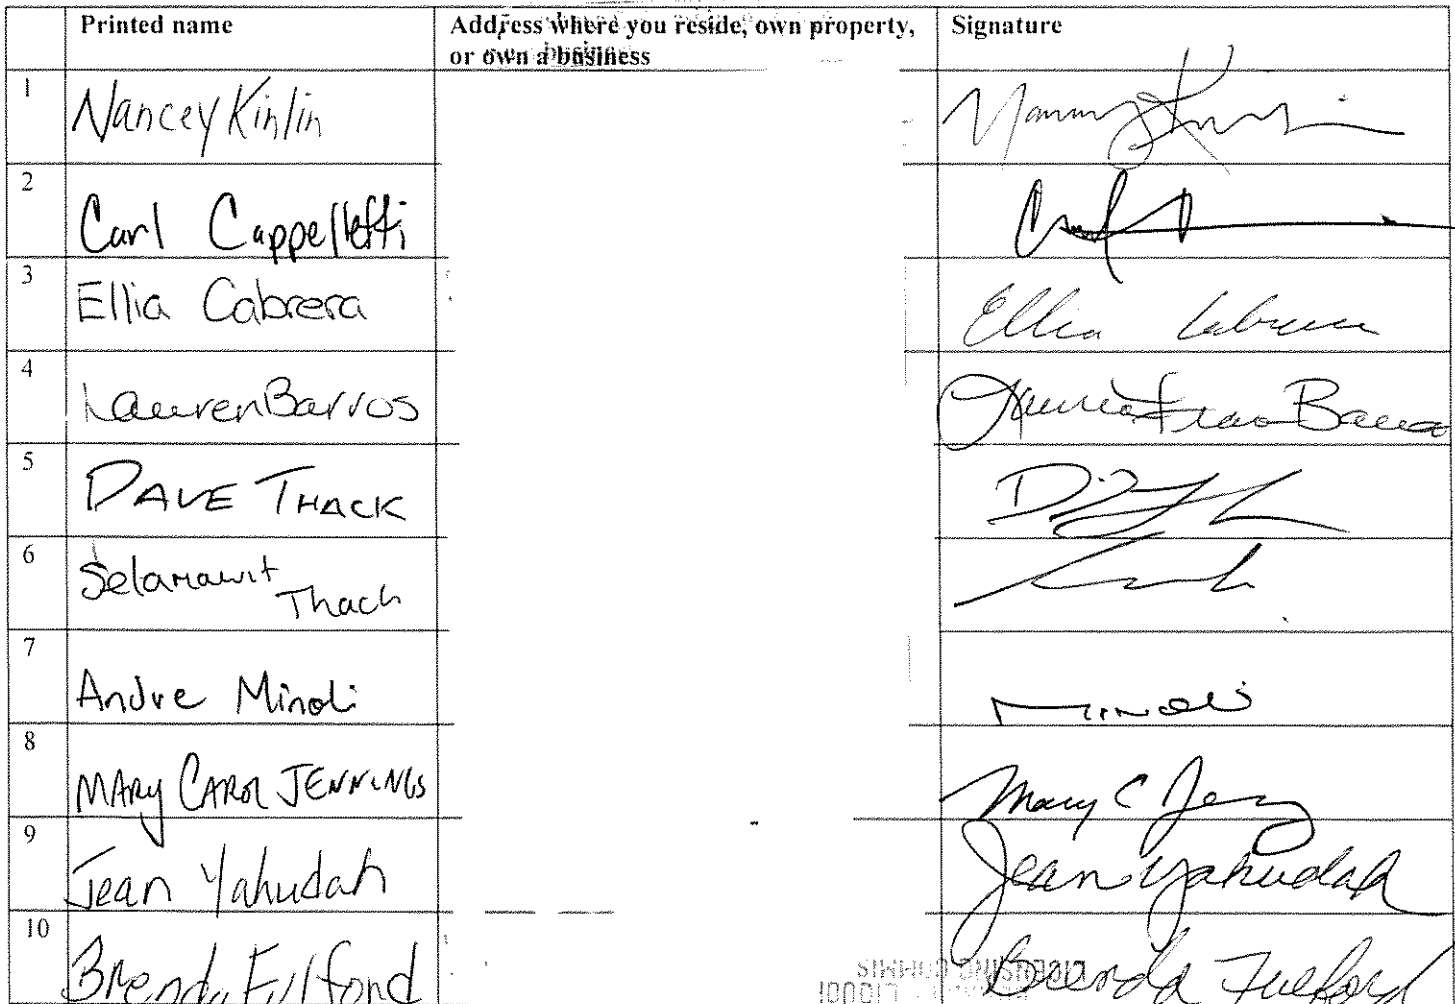 Printed name Address where you reside, own property, or own a business Signature
1 Nancey Kinlin
2 Carl Cappelletti
3 Ellia Cabrera Ellia Cabrera
4 Lauren Barros
5 DAVE THACK
6 Selamawit Thach
7 Andre Minoli Minoli
8 MARY CAROL JENNINGS Mary C Jen
9 Jean Yahudah Jean Yahudah
10 Brenda Fulford Brenda Fulford